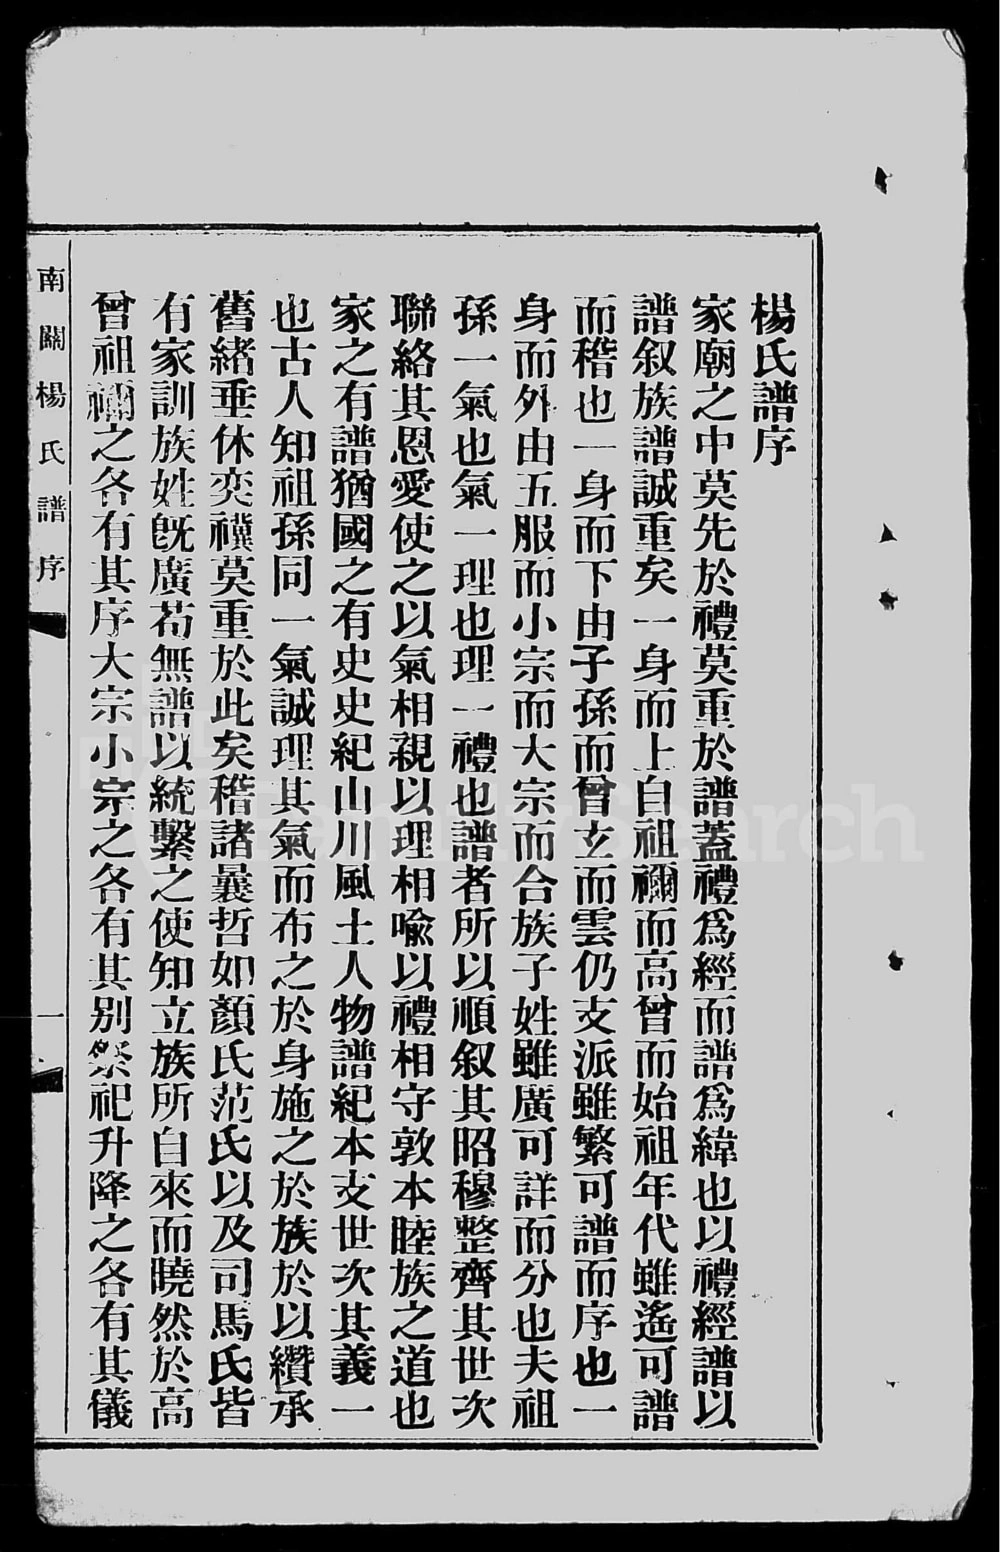 楊氏譜序
家廟之中莫先於禮莫重於譜蓋禮爲經而譜爲緯也以禮經譜以
譜叙族譜誠重矣一身而上自祖禰而高曾而始祖年代雖遙可譜
而稽也一身而下由子孫而曾玄而雲仍支派雖繁可譜而序也一
身而外由五服而小宗而大宗而合族子姓雖廣可詳而分也夫祖
孫一氣也氣一理也理一禮也譜者所以順叙其昭穆整齊其世次
聯絡其恩愛使之以氣相親以理相喩以禮相守敦本睦族之道也
家之有譜猶國之有史史紀山川風土人物譜紀本支世次其義一
也古人知祖孫同一氣誠理其氣而布之於身施之於族於以纘承
舊緒垂休奕禩莫重於此矣稽諸曩哲如顏氏范氏以及司馬氏皆
有家訓族姓旣廣苟無譜以統繫之使知立族所自來而曉然於高
曾祖禰之各有其序大宗小宗之各有其別祭祀升降之各有其儀
南關楊氏譜序
一
FamilySearch